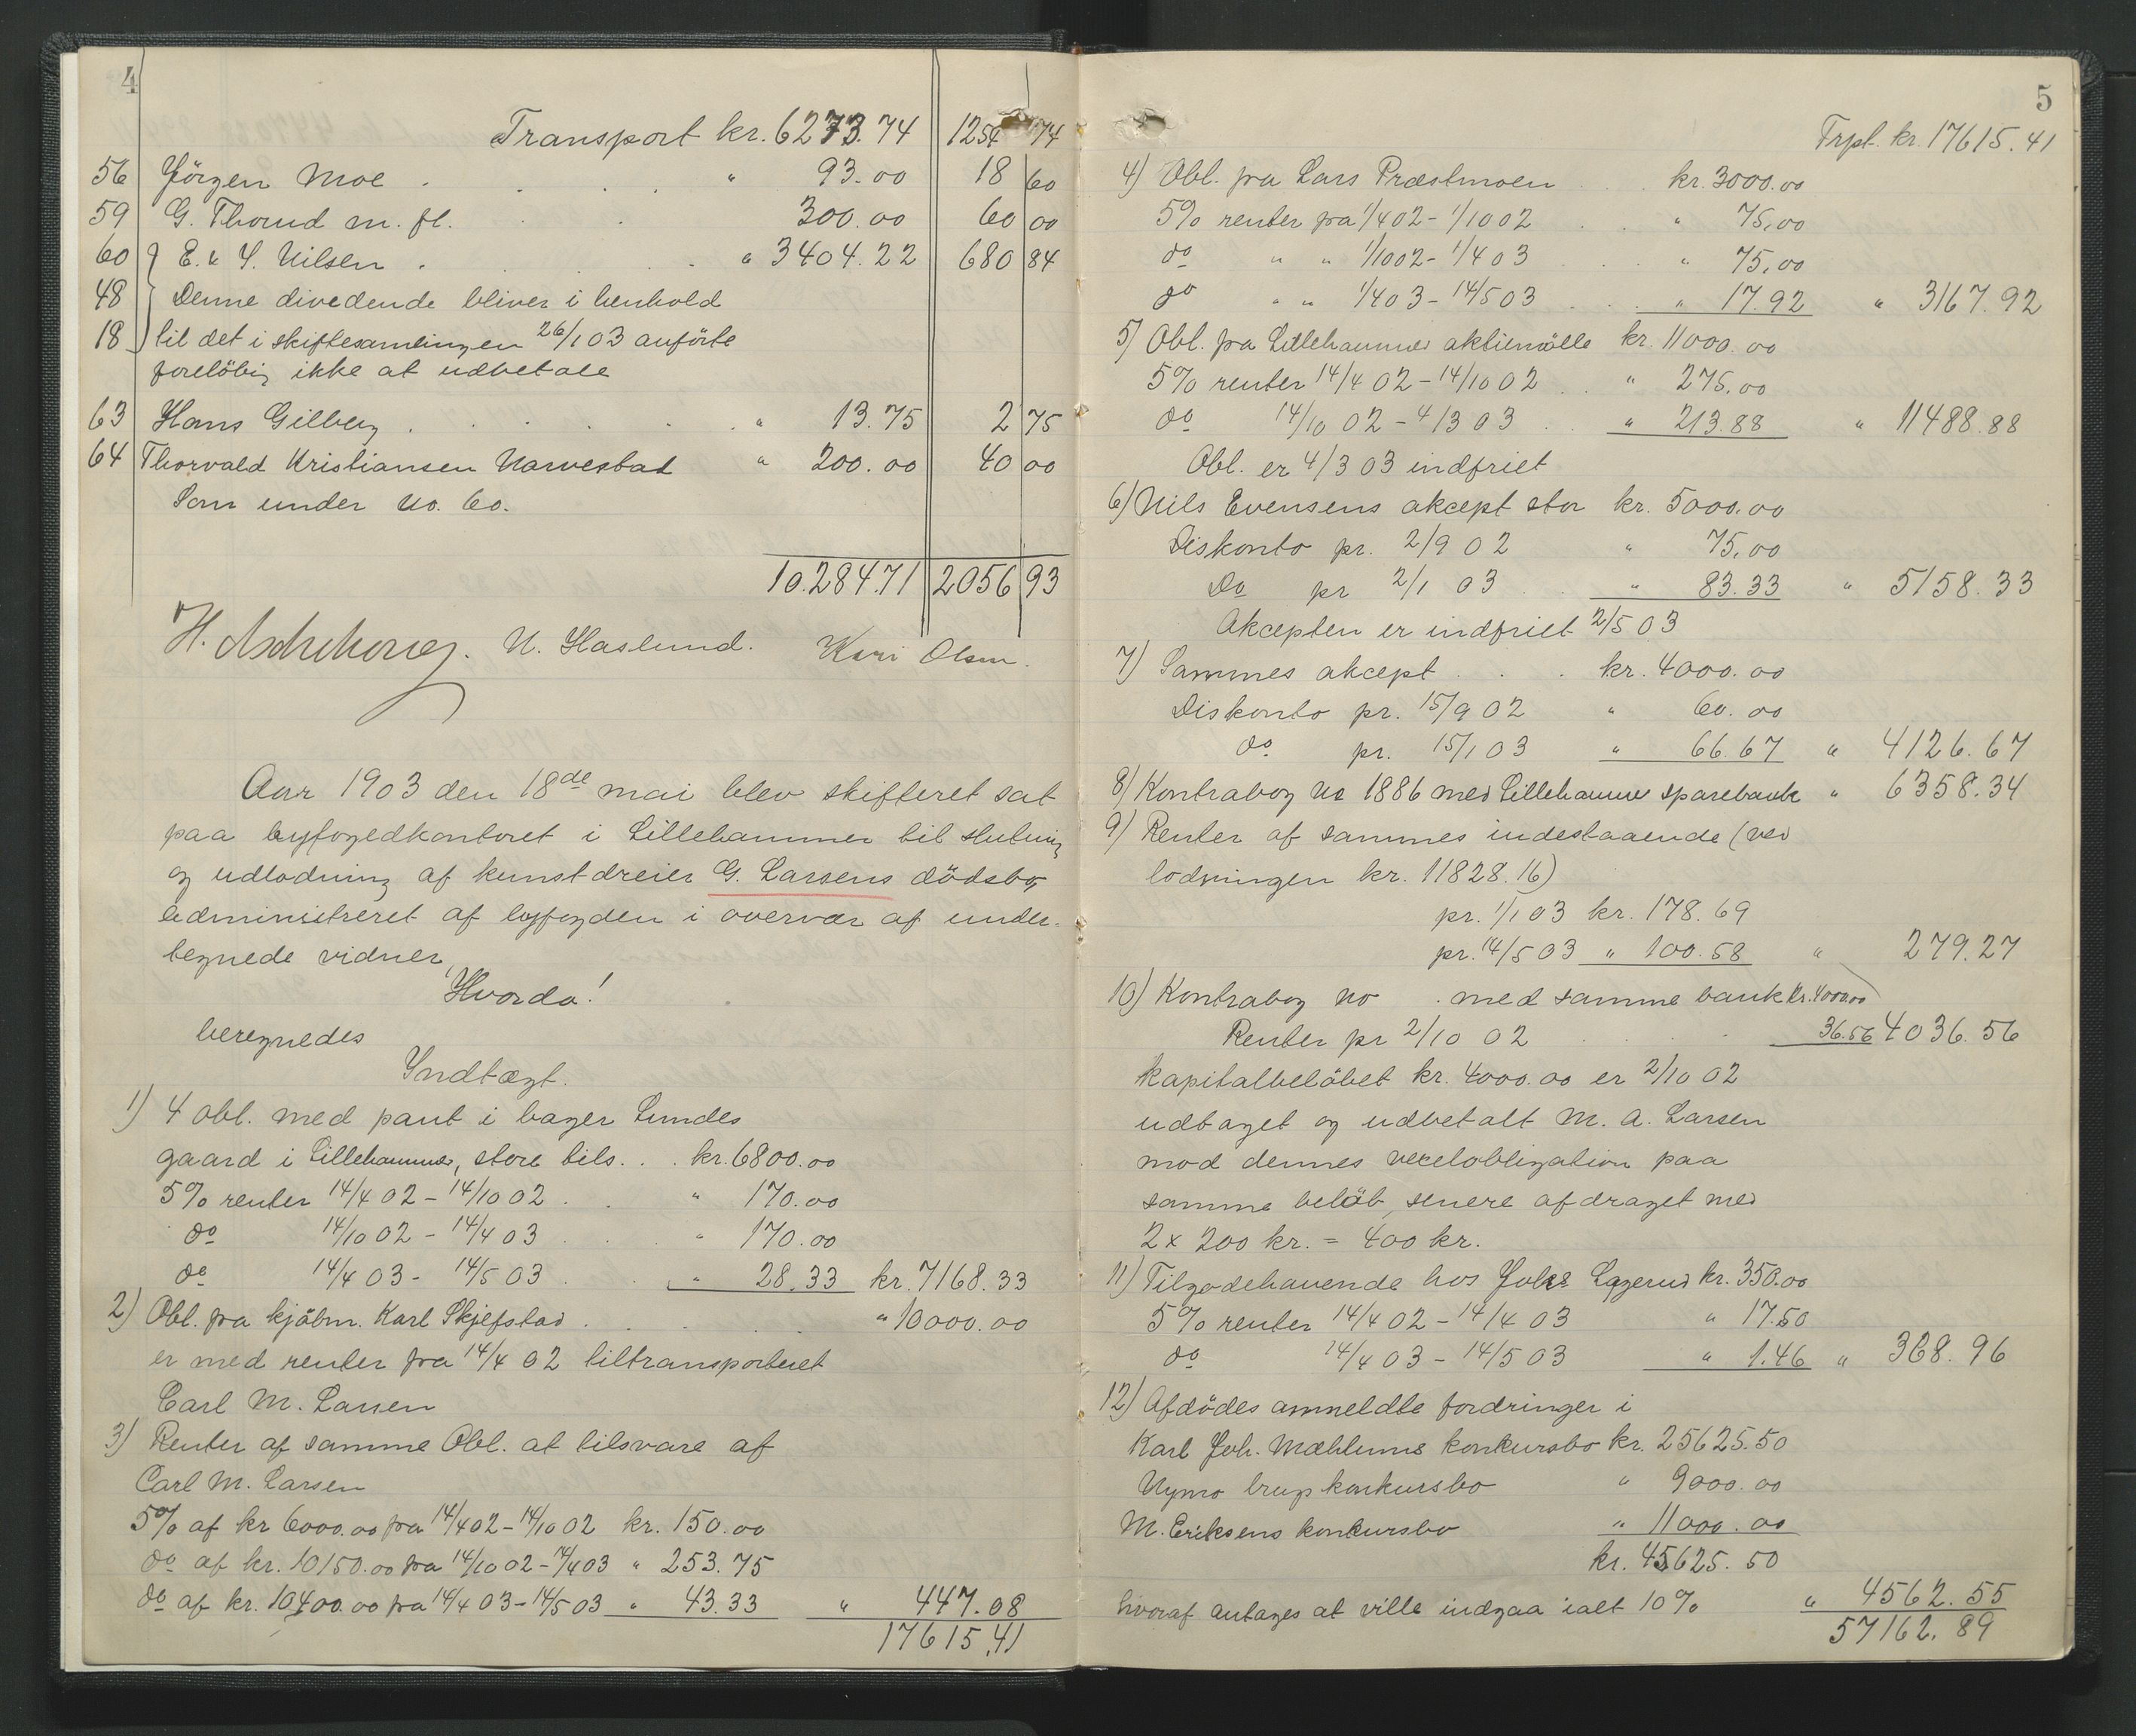 4
Transport kr. 6273.74 1254 74
56 Jörgen Moe . . . . " 93.00 18 60
59 G. Thorud m. fl. . . 300.00 60 00
60 E. & S. Nilsen . . . . " 3404.22 680 84
48 Denne divedende bliver i henhold
18 til det i skiftesamlingen 26/1 03 anförte
forelöbig ikke at udbetale
63 Hans Gilberg . . . . . " 13.75 2 75
64 Thorvald Kristiansen Narvestad " 200.00 40 00
Som under No. 60.
10.284.71 2056 93
H. Aschehoug. N. Haslund. Kari Olsen.
Aar 1903 den 18de mai blev skifteret sat
paa byfogedkontoret i Lillehammer til slutning
og udlodning af kunstdreier G. Larsens dödsbo,
administreret af byfogden i overvær af under-
tegnede vidner,
Hvorda!
beregnedes
Indtægt.
1) 4 obl. med pant i bager Lundes
gaard i Lillehammer, store tils. . . kr. 6800.00
5% renter 14/4 02 – 14/10 02 . . " 170.00
do 14/10 02 – 14/4 03 . . " 170.00
do 14/4 03 - 14/5 03 . . " 28.33 kr. 7168.33
2) Obl. fra kjöbm. Karl Skjefstad . . . . " 10000.00
er med renter fra 14/4 02 tiltransporteret
Carl M. Larsen
3) Renter af samme Obl. at tilsvare af
Carl M. Larsen
5% af kr 6000.00 fra 14/4 02 – 14/10 02 kr. 150.00
do af kr. 10150.00 fra 14/10 02 – 14/4 03 " 253.75
do af kr. 10400.00 fra 14/4 03 – 14/5 03 " 43.33 " 447.08
17615.41
5
Trpt. kr. 17615.41
4) Obl. fra Lars Præstmoen . . kr. 3000.00
5% renter fra 1/4 02 - 1/10 02 . . " 75,00
do " " 1/10 02 - 1/4 03 . . " 75,00
do " " 1/4 03 - 14/5 03 . . " 17.92 " 3167.92
5) Obl. fra Lillehammer aktiemölle kr. 11000.00
5% renter 14/4 02 – 14/10 02 . . " 275.00
do 14/10 02 – 4/3 03 . . " 213.88 " 11488.88
Obl. er 4/3 03 indfriet
6) Nils Evensens akcept stor kr. 5000.00
Diskonto pr. 2/9 02 " 75,00
Do pr 2/1 03 . . " 83.33 " 5158.33
Akcepten er indfriet 2/5 03
7) Sammes akcept . . . kr. 4000.00
Diskonto pr. 15/9 02 " 60.00
do pr. 15/1 03 " 66.67 " 4126.67
8) Kontrabog No 1886 med Lillehammer sparebank " 6358.34
9) Renter af sammes indestaaende (ved
lodningen kr. 11828.16)
pr. 1/1 03 kr. 178.69
pr. 14/5 03 " 100.58 " 279.27
10) Kontrabog No . med samme bank kr. 4000.00
Renter pr 2/10 02 . . . . 36.56 4036.56
Kapitalbelöbet kr. 4000.00 er 2/10 02
udtaget og udbetalt M. A. Larsen
mod dennes vexelobligation paa
samme belöb, senere afdraget med
2 x 200 kr. = 400 kr.
11) Tilgodehavende hos Johs Lagerud kr. 350.00
5% renter 14/4 02 – 14/4 03 " 17.50
do 14/4 03 – 14/5 03 " 1.46 " 368.96
12) Afdödes anmeldte fordringer i
Karl Joh. Mæhlums konkursbo kr. 25625.50
Nymo brugs konkursbo " 9000.00
M. Eriksens konkursbo " 11000.00
kr. 45625.50
hvoraf antages at ville indgaa ialt 10% " 4562.55
57162.89